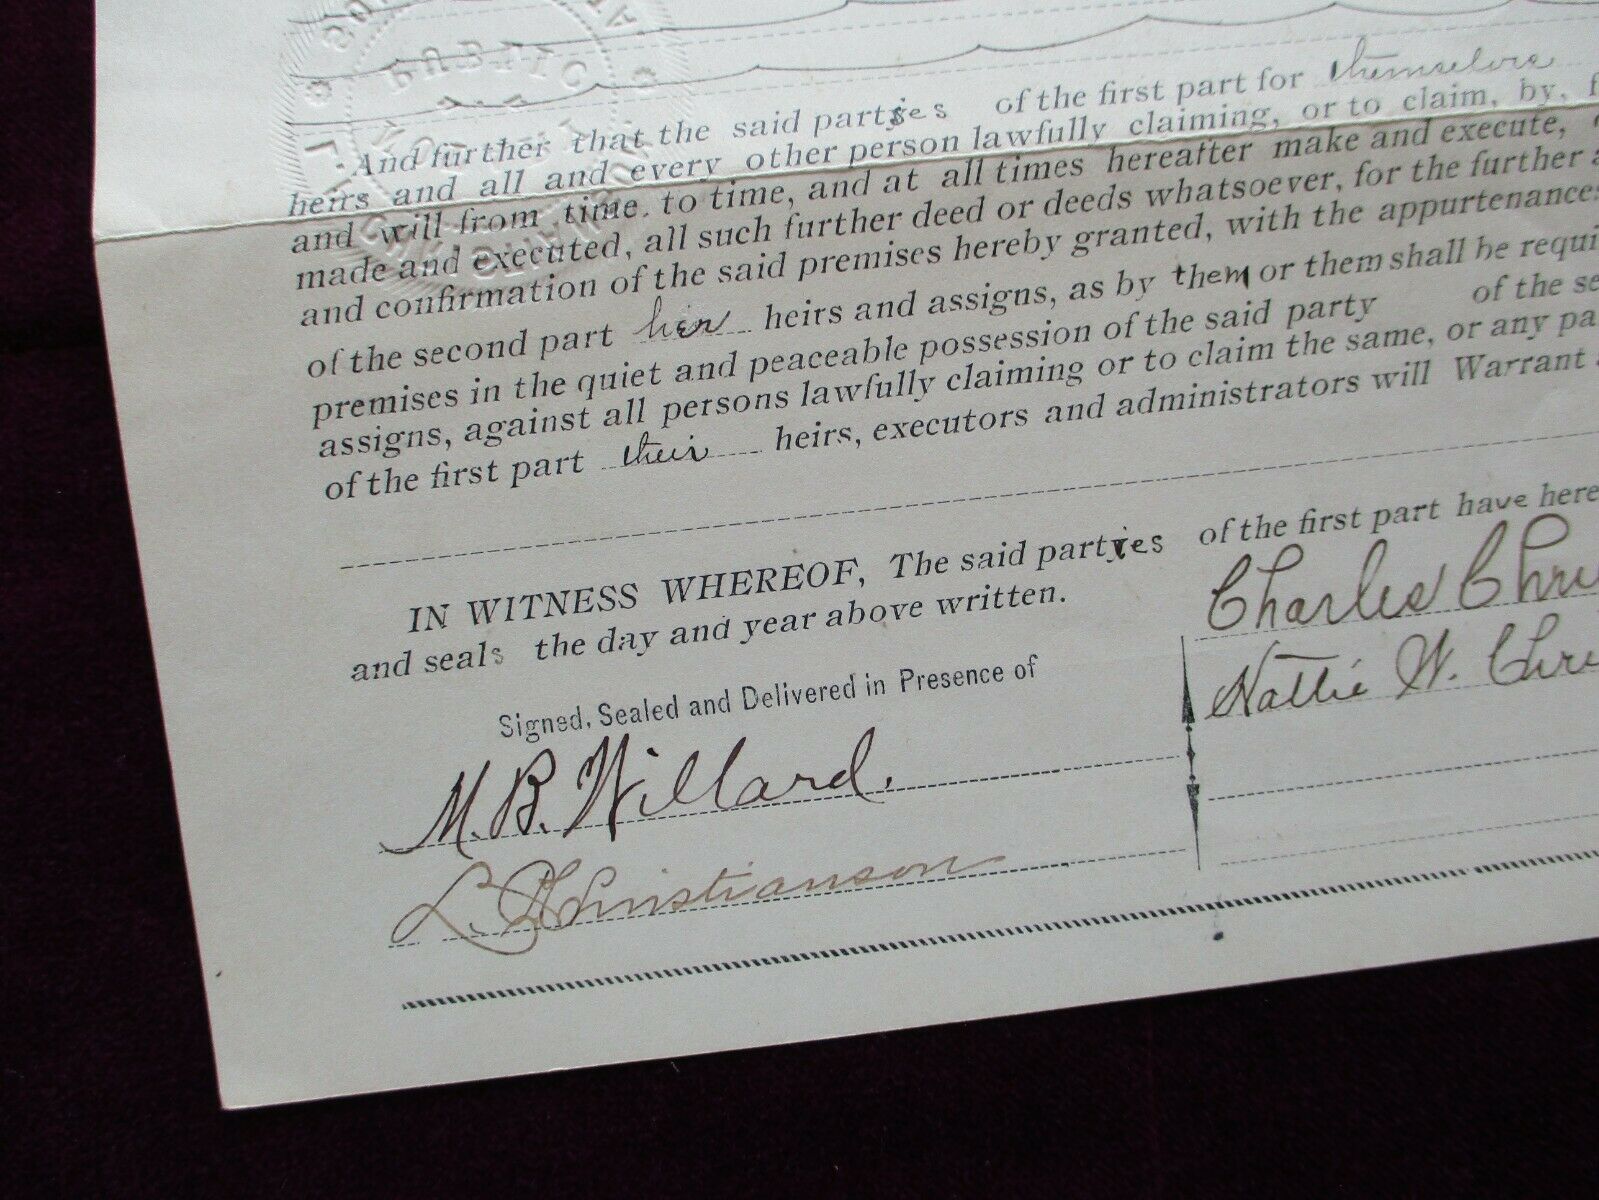 PUBLIC
And further that the said parties of the first part for themselves
heirs and all and every other person lawfully claiming, or to claim, by,
and will from time to time, and at all times hereafter make and execute,
made and executed, all such further deed or deeds whatsoever, for the further
and confirmation of the said premises hereby granted, with the appurtenances
of the second part her heirs and assigns, as by them or them shall be requi
premises in the quiet and peaceable possession of the said party of the se
assigns, against all persons lawfully claiming or to claim the same, or any pa
of the first part their heirs, executors and administrators will Warrant
IN WITNESS WHEREOF, The said parties of the first part have here
and seals the day and year above written.
Signed, Sealed and Delivered in Presence of
M. B. Willard.
L. Christianson
Charles Chri
Hattie W. Chri